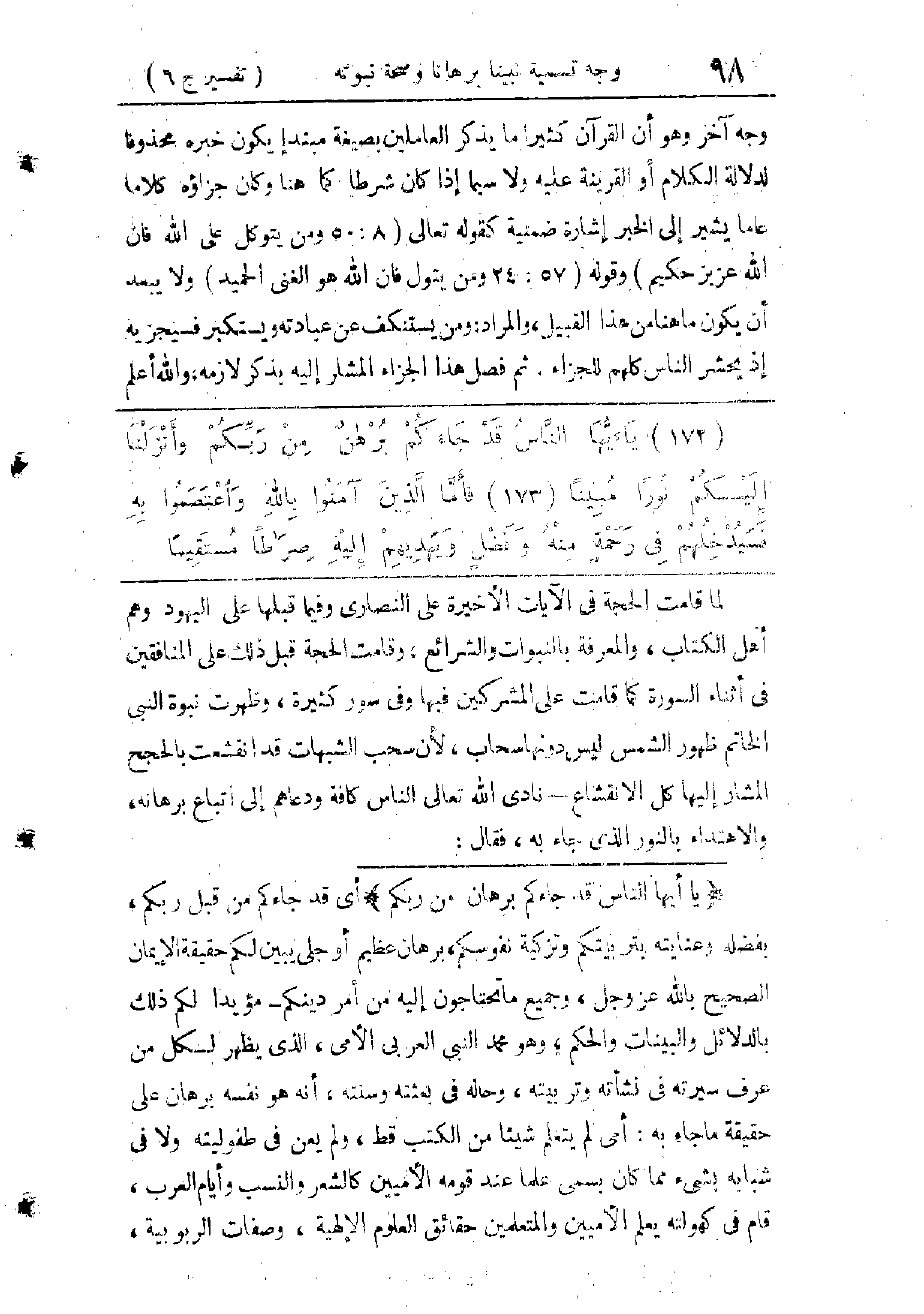 ٩٨ وجه تسمية نبينا برهانا وصحة نبوته ( تفسير ج ٦ )
وجه آخر وهو أن القرآن كثيرا ما يذكر العاملين بصيغة مبتدإ يكون خبره محذوفا
لدلالة الكلام أو القرينة عليه ولا سيما إذا كان شرطا كما هنا وكان جزاؤه كلاما
عاما يشير إلى الخبر إشارة ضمنية كقوله تعالى ( ٨ : ٥٠ ومن يتوكل على الله فان
الله عزيز حكيم ) وقوله ( ٥٧ : ٢٤ ومن يتول فان الله هو الغنى الحميد ) ولا يبعد
أن يكون ما هنا من هذا القبيل ، والمراد : ومن يستنكف عن عبادته ويستكبر فسيجزيه
إذ يحشر الناس كلهم للجزاء . ثم فصل هذا الجزاء المشار إليه بذكر لازمه ، والله أعلم
(١٧٢) يَاءَيُّهَا النَّاسُ قَدْ جَاءَكُمْ بُرْهَٰنٌ مِنْ رَبِّكُمْ وَأَنْزَلْنَا
إِلَيْكُمْ نُورًا مُبِينًا (١٧٣) فَأَمَّا الَّذِينَ آمَنُوا بِاللهِ وَاعْتَصَمُوا بِهِ
فَسَيُدْخِلُهُمْ فِى رَحْمَةٍ مِنْهُ وَفَضْلٍ وَيَهْدِيهِمْ إِلَيْهِ صِرَاطًا مُسْتَقِيمًا
لما قامت الحجة فى الآيات الأخيرة على النصارى وفيما قبلها على اليهود وهم
أهل الكتاب ، والمعرفة بالنبوات والشرائع ، وقامت الحجة قبل ذلك على المنافقين
فى أثناء السورة كما قامت على المشركين فيها وفى سور كثيرة ، وظهرت نبوة النبي
الخاتم ظهور الشمس ليس دونها سحاب ، لأن سحب الشبهات قد انقشعت بالحجج
المشار إليها كل الانقشاع — نادى الله تعالى الناس كافة ودعاهم إلى اتباع برهانه،
والاهتداء بالنور الذى جاء به ، فقال :
﴿ يا أيها الناس قد جاءكم برهان من ربكم ﴾ أى قد جاءكم من قبل ربكم ،
بفضله وعنايته بتربيتكم وتزكية نفوسكم ، برهان عظيم أو جلى يبين لكم حقيقة الإيمان
الصحيح بالله عز وجل ، وجميع ما تحتاجون إليه من أمر دينكم ـ مؤيدا لكم ذلك
بالدلائل والبينات والحكم ، وهو محمد النبي العربى الأمى ، الذى يظهر لكل من
عرف سيرته فى نشأته وتربيته ، وحاله فى بعثته وسنته ، أنه هو نفسه برهان على
حقيقة ما جاء به : أمى لم يتعلم شيئا من الكتب قط ، ولم يعن فى طفوليته ولا فى
شبابه بشيء مما كان يسمى علما عند قومه الأميين كالشعر والنسب وأيام العرب ،
قام فى كهولته يعلم الأميين والمتعلمين حقائق العلوم الإلهية ، وصفات الربوبية ،